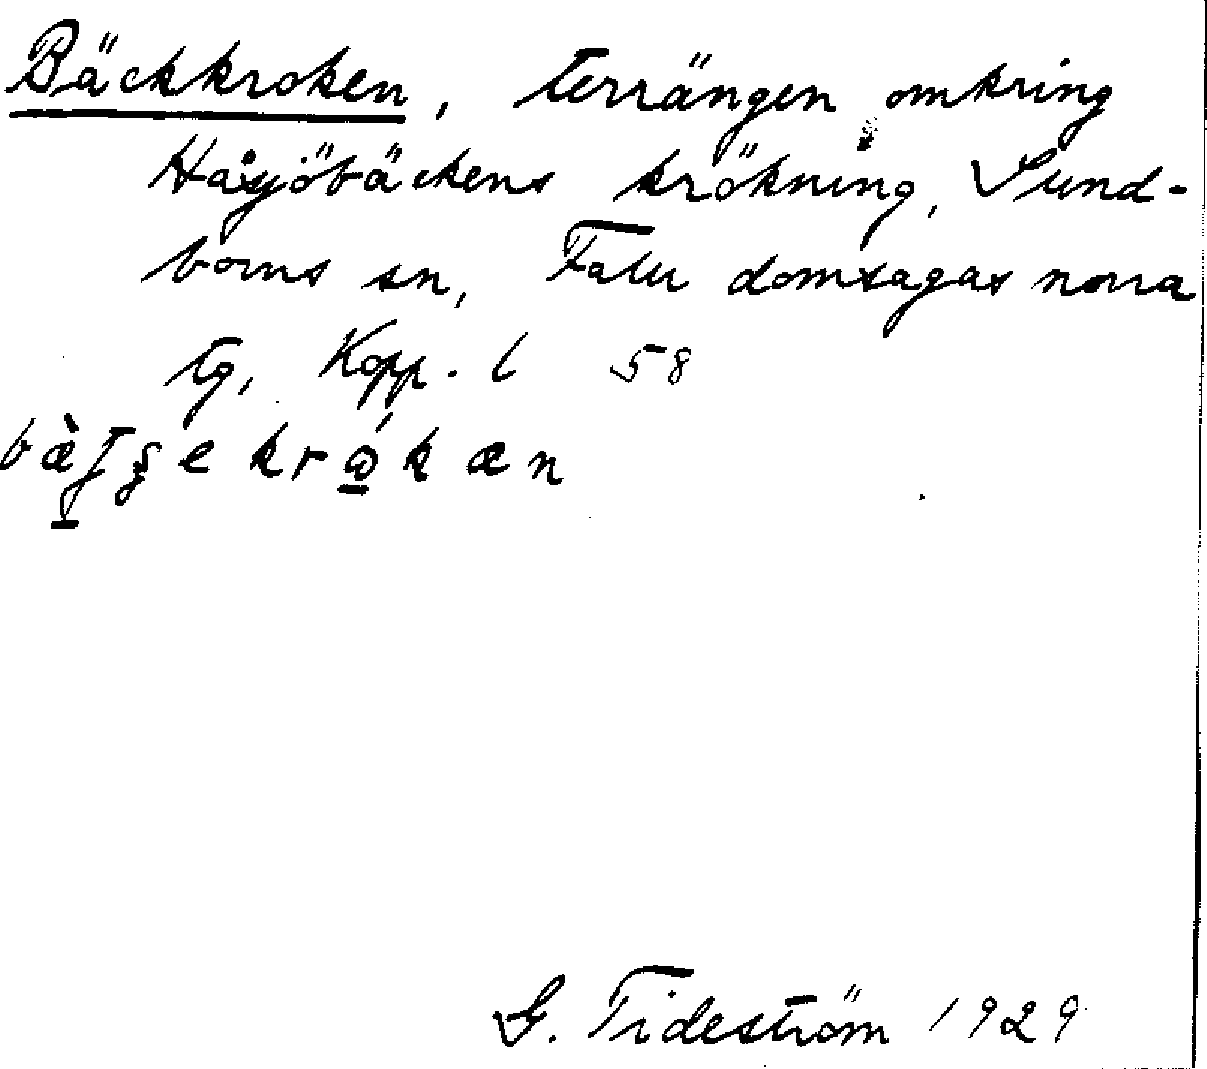 Bäckkroken, terrängen omkring
Håsjöbäckens krökning, Sund-
borns sn, Falu domsagas norra
tg, Kopp. l 58
G. Tideström 1929